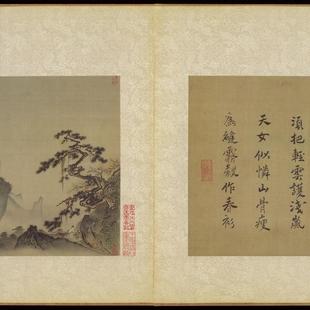 須把輕雲護淺嵐
天女似憐山骨瘦
為縫霧縠作春衫